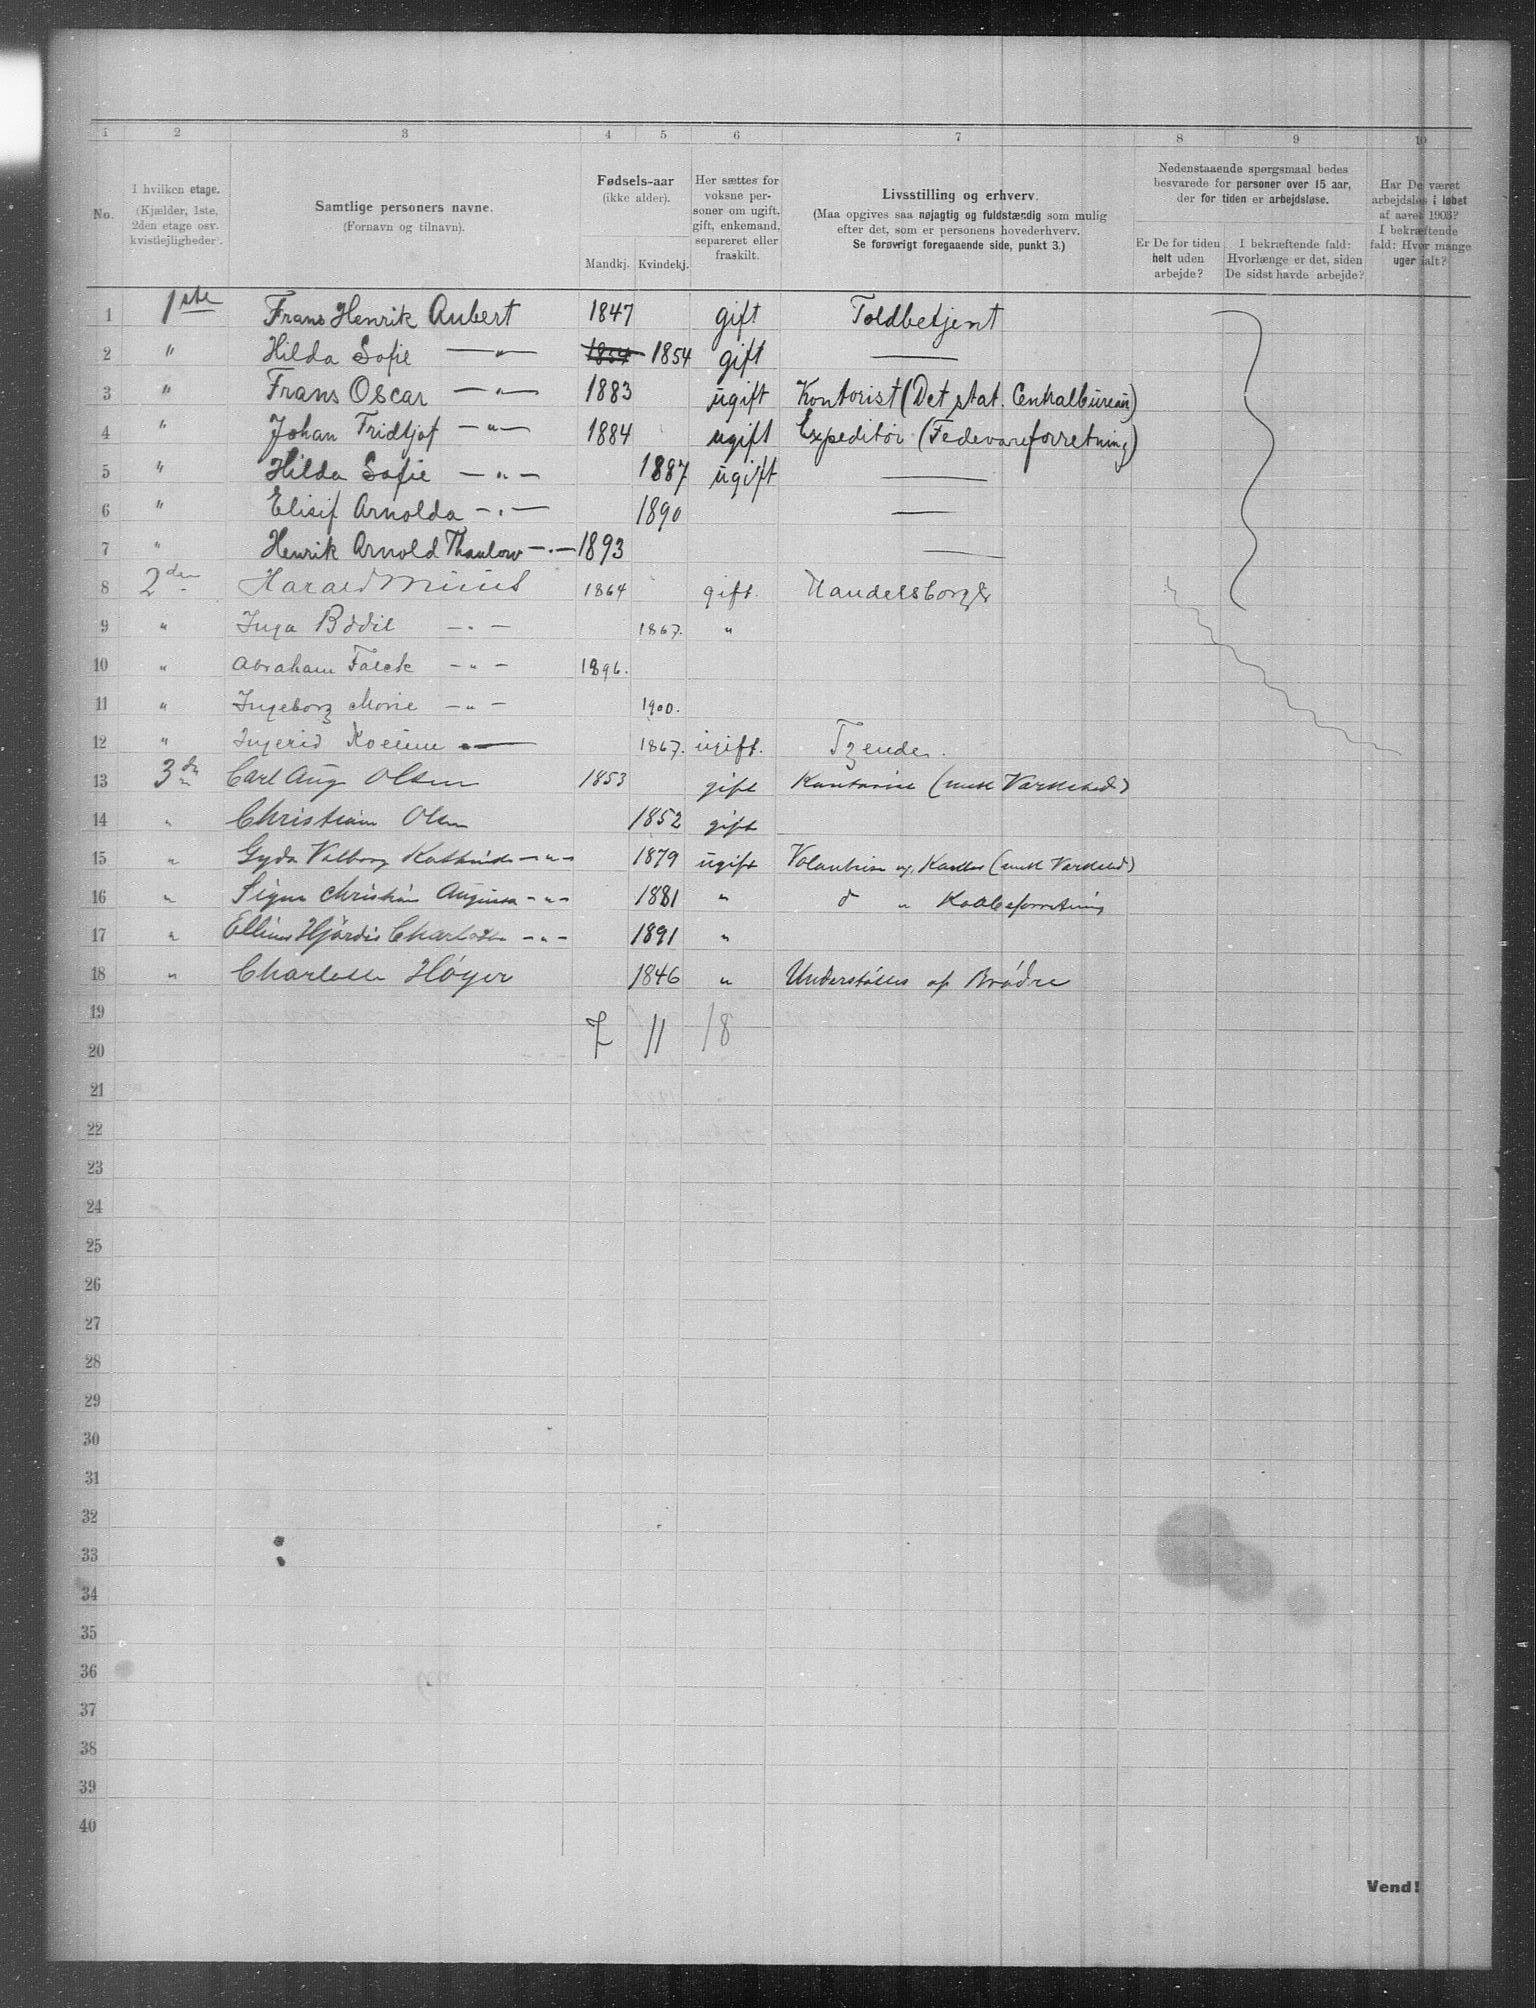 1 2 3 4 5 6 7 8 9 10
No.
I hvilken etage.
(Kjælder, 1ste,
2den etage osv.
kvistlejligheder).
Samtlige personers navne.
(Fornavn og tilnavn).
Fødsels-aar
(ikke alder).
Mandkj. Kvindekj.
Her sættes for
voksne per-
soner om ugift,
gift, enkemand,
separeret eller
fraskilt.
Livsstilling og erhverv.
(Maa opgives saa nøjagtig og fuldstændig som mulig
efter det, som er personens hovederhverv.
Se forøvrigt foregaaende side, punkt 3.)
Nedenstaaende spørgsmaal bedes
besvarede for personer over 15 aar,
der for tiden er arbejdsløse.
Er De for tiden
helt uden
arbejde?
I bekræftende fald:
Hvorlænge er det, siden
De sidst havde arbejde?
Har De været
arbejdsløs i løbet
af aaret 1903?
I bekræftende
fald: Hvor mange
uger ialt?
1 1ste Frans Henrik Aubert 1847 gift Toldbetjent
2 " Hilda Sofie —"— 1854 1854 gift —
3 " Frans Oscar —"— 1883 ugift Kontorist (Det stat. Centralbureau)
4 " Johan Fridtjof —"— 1884 ugift Expeditør (Fedevareforretning)
5 " Hilda Sofie —"— 1887 ugift —
6 " Elisif Arnolda —"— 1890 —
7 " Henrik Arnold Thaulow —"— 1893 —
8 2den Harald 1864 gift. Handelsborger
9 " Inga Bodil —"— 1867. "
10 " Abraham Falck —"— 1896.
11 " Ingeborg Marie —"— 1900.
12 " Ingerid — 1867. ugift. Tjener
13 3die Carl Aug Olsen 1853 gift Kontorist (mek Værksted)
14 " Christiane Olsen 1852 gift
15 " Gyda Valborg Kathinda —"— 1879 ugift (mek Værksted)
16 " Signe Christine Augusta —"— 1881 " do " Kaabeforretning
17 " Hjørdis Charlotte —"— 1891 "
18 " Charlotte Høyer 1846 " Understøttes af Brødre
19
7 11 18
20
21
22
23
24
25
26
27
28
29
30
31
32
33
34
35
36
37
38
39
40
Vend!